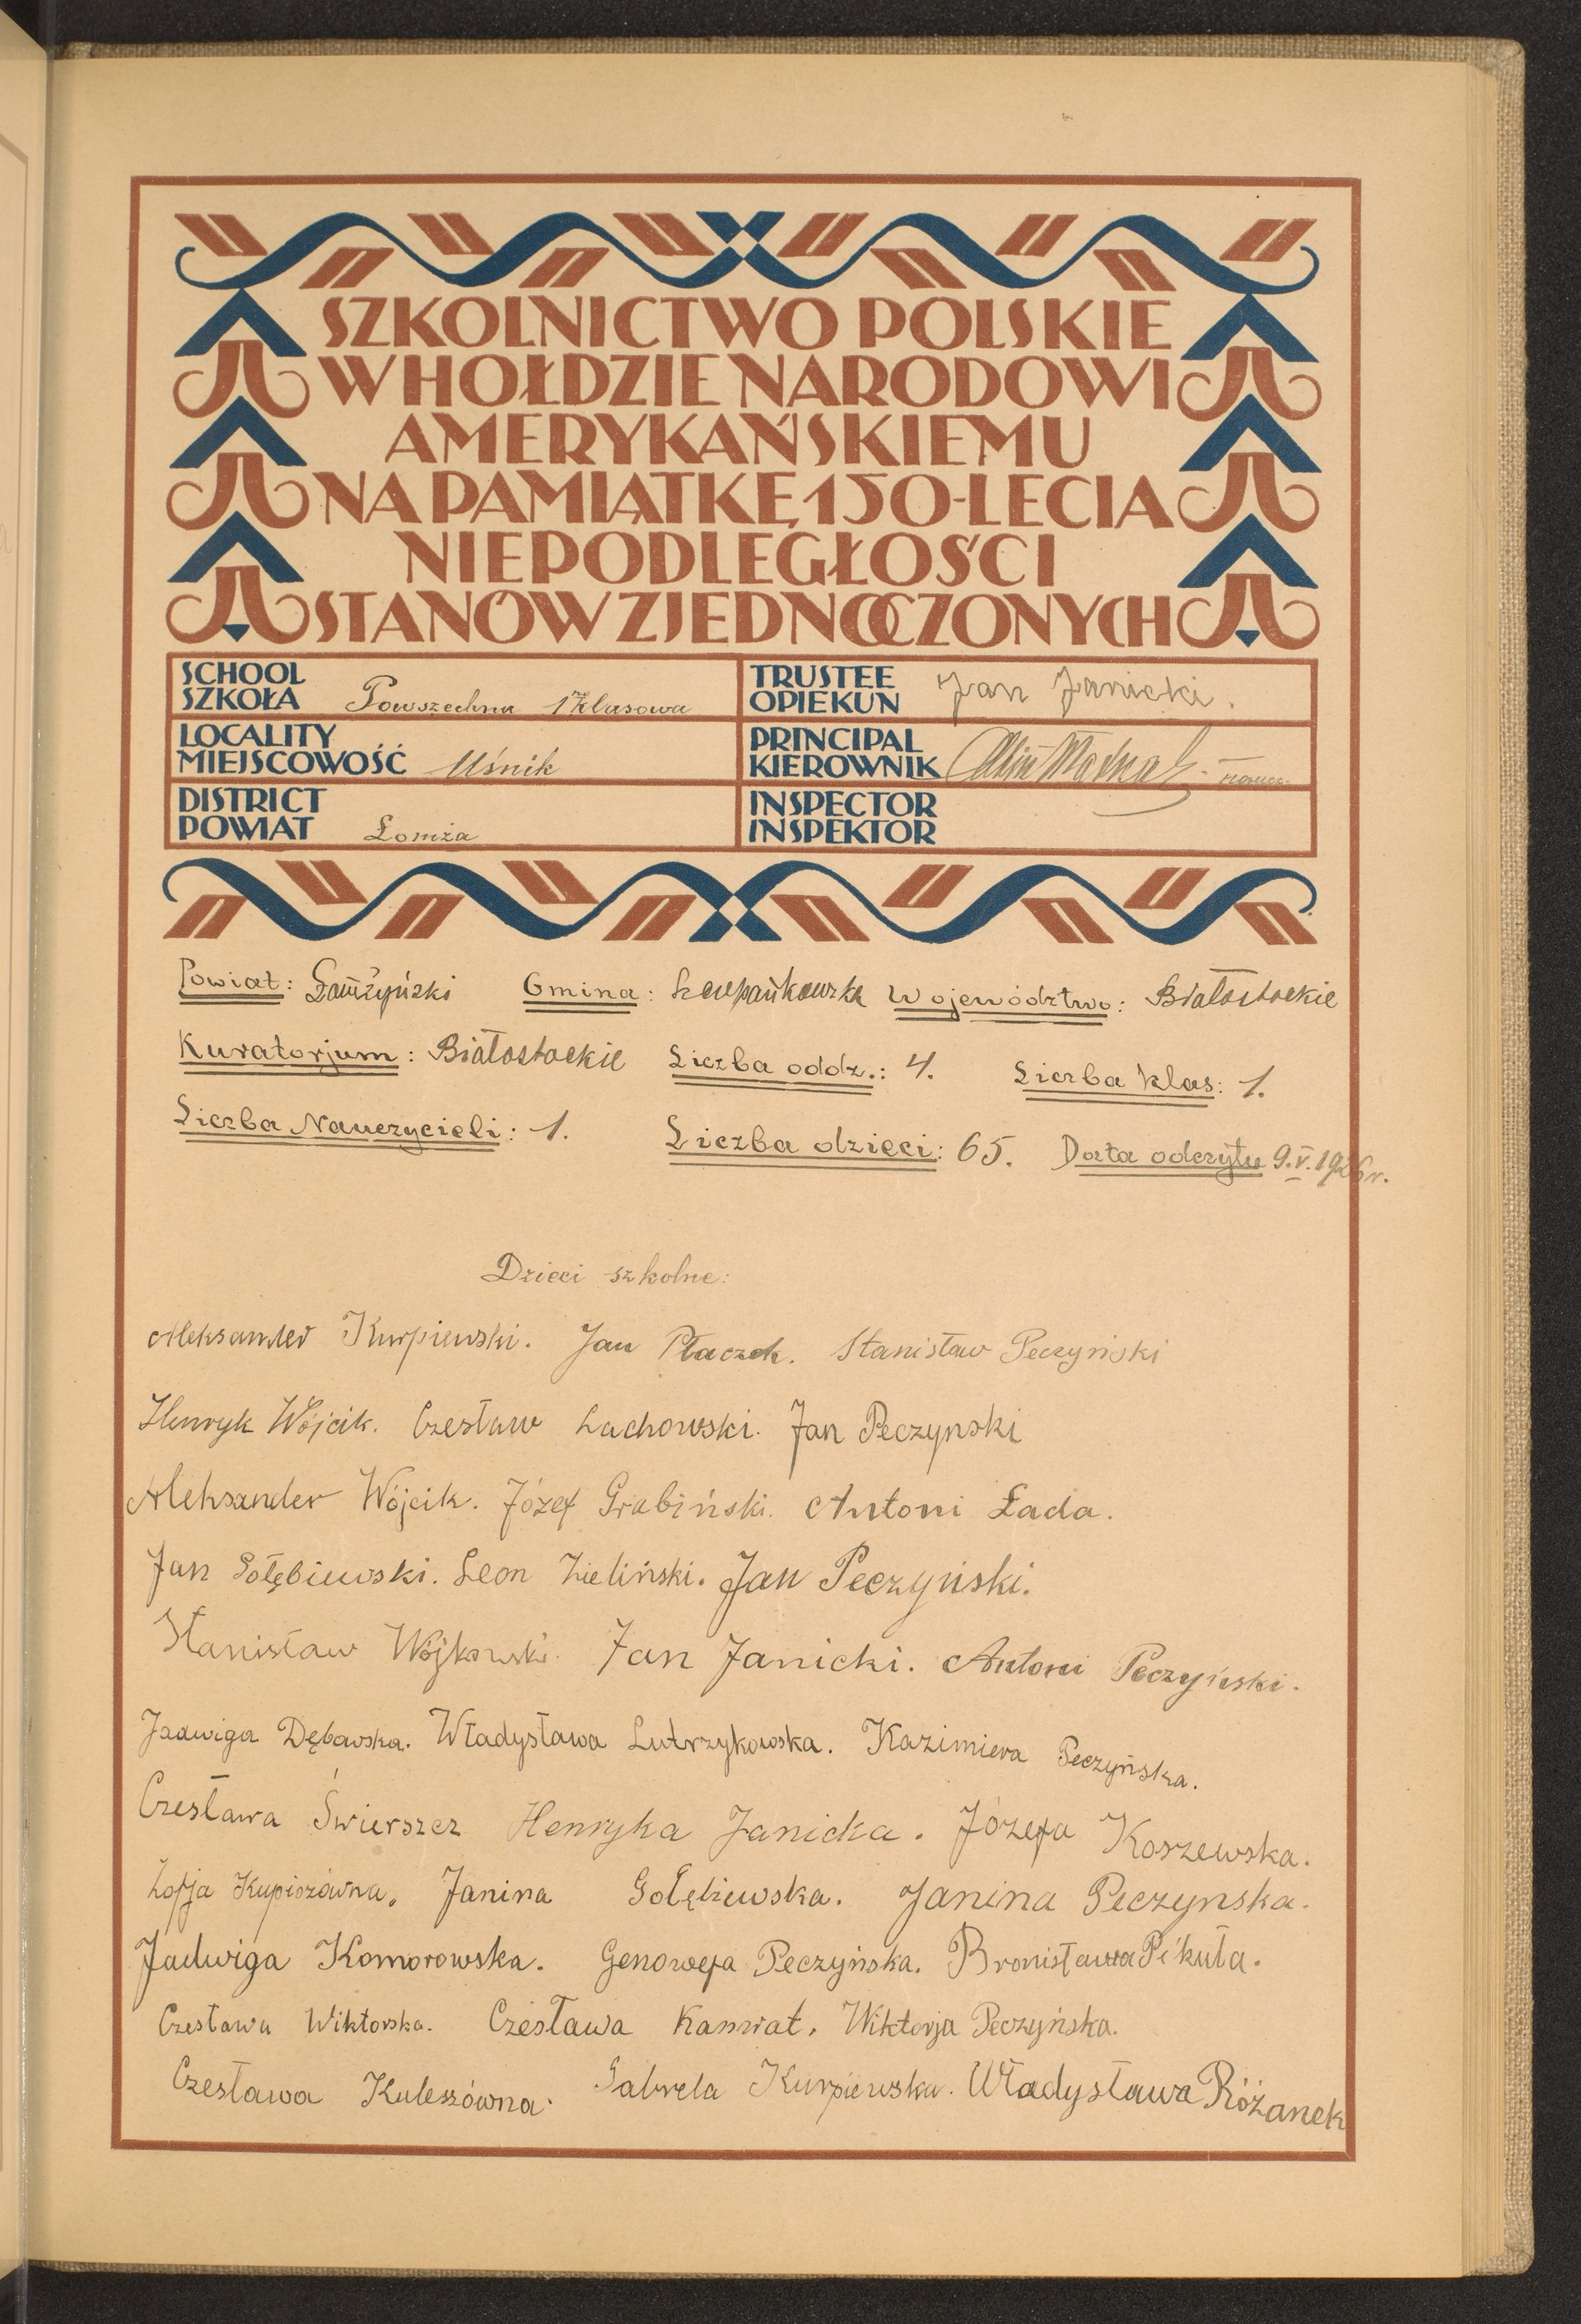 SZKOLNICTWO POLSKIE
W HOŁDZIE NARODOWI
AMERYKAŃSKIEMU
NA PAMIĄTKĘ 150-LECIA
NIEPODLEGŁOŚCI
STANÓW ZJEDNOCZONYCH
SCHOOL
SZKOŁA Powszechna 1 klasowa
TRUSTEE
OPIEKUN Jan Janicki.
LOCALITY
MIEJSCOWOŚĆ Uśnik
PRINCIPAL
KIEROWNIK
DISTRICT
POWIAT Łomża
INSPECTOR
INSPEKTOR
Powiat: Łomżyński Gmina: Szczepańkowska Województwo: Białostockie
Kuratorjum: Białostockie Liczba oddz.: 4. Liczba klas: 1.
Liczba Nauczycieli: 1. Liczba dzieci: 65. Data odczytu 9.V.1926 r.
Dzieci szkolne:
Aleksander Kurpiewski. Jan Płaczek. Stanisław Peczyński
Henryk Wójcik. Czesław Lachowski. Jan Peczynski
Aleksander Wójcik. Józef Grabiński. Antoni Łada.
Jan Gołębiewski. Leon Zieliński. Jan Peczyński.
Stanisław Wójkowski. Jan Janicki. Antoni Peczyński.
Jadwiga Dębowska. Władysława Lutrzykowska. Kazimiera Peczyńska.
Czesława Świerszcz Henryka Janicka. Józefa Koszewska.
Zofja Kupiszówna. Janina Gołębiewska. Janina Peczynska.
Jadwiga Komorowska. Genowefa Peczyńska. Bronisława Pikuła.
Czesława Wiktorska. Czesława Kamrat. Wiktorja Peczyńska.
Czesława Kuleszówna. Gabrela Kurpiewska. Władysława Różanek